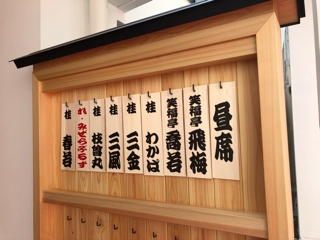 昼席
笑福亭 飛梅
笑福亭 喬若
桂 わかば
桂 三金
桂 三風
桂 枝曾丸
れ・みぜらぶるず
桂 春若